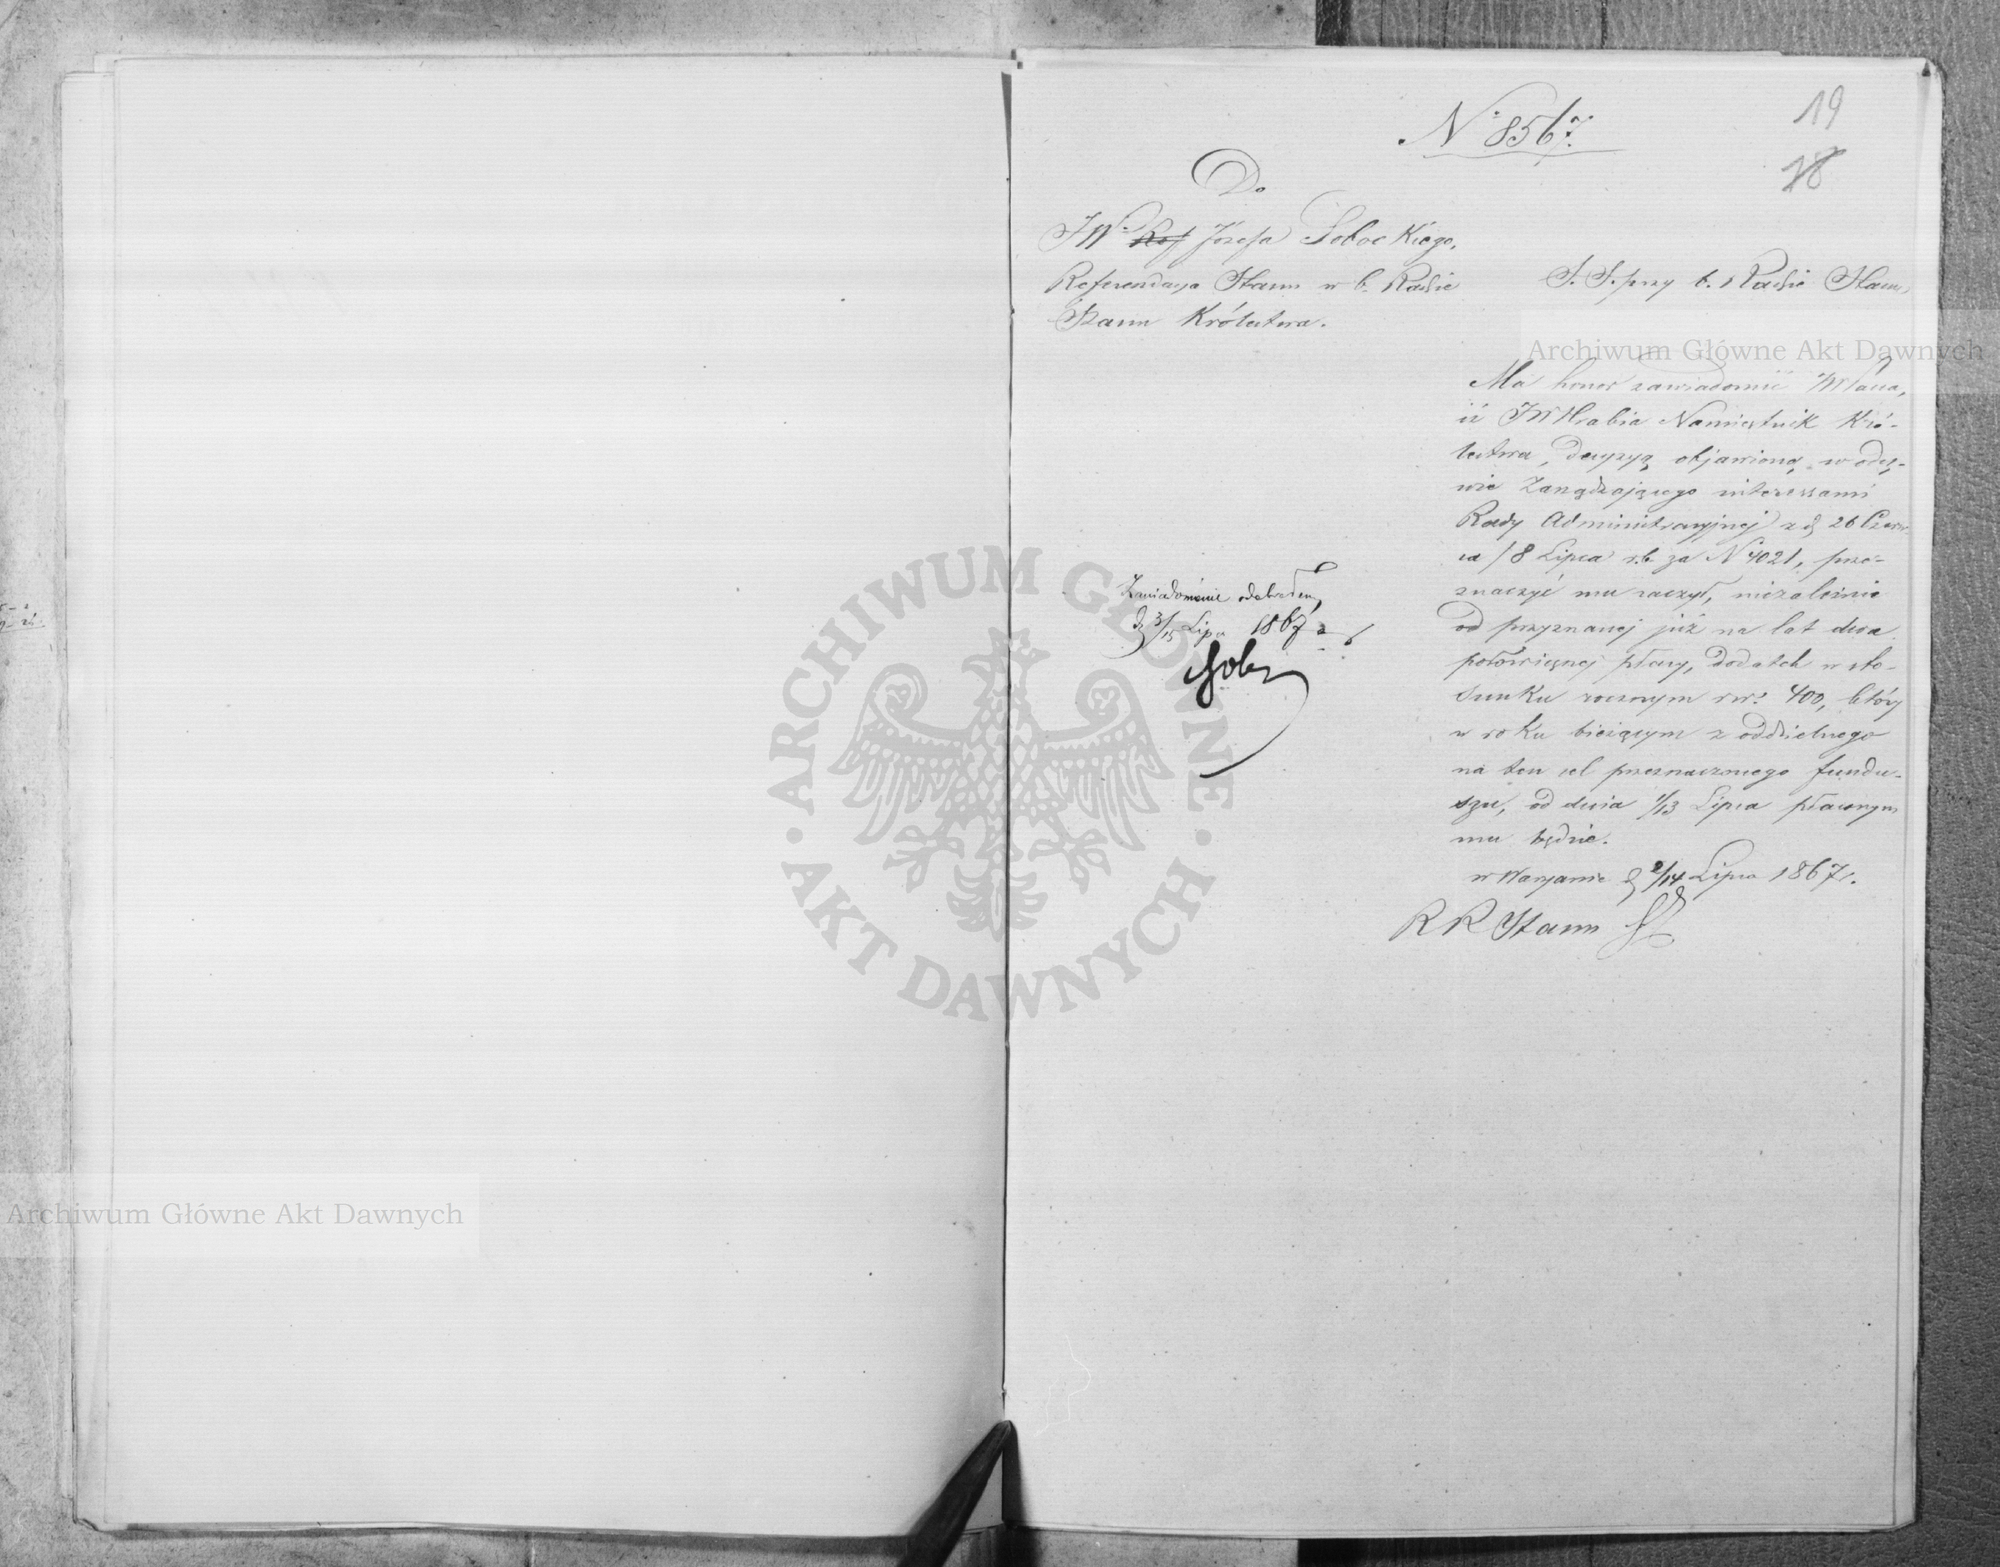 19
18
№ 8567.
Do
JW° Józefa Sobockiego,
Referendarza Stanu w b. Radzie
Stanu Królestwa.
S. S. przy b. Radzie Stanu,
Ma honor zawiadomić JWPana,
iż JW Hrabia Namiestnik Kró-
lestwa, decyzyą objawioną w odez-
wie Zarządzającego interessami
Rady Administracyjnej z d. 26 Czerw-
ca / 8 Lipca r.b. za N 4021, prze-
znaczyć mu raczył, niezależnie
od przyznanej już na lat dwa
połowicznej płacy, dodatek w sto-
sunku rocznym rsr. 400, który
w roku bieżącym z oddzielnego
na ten cel przeznaczonego fundu-
szu, od dnia 1/13 Lipca płaconym
mu będzie.
w Warszawie d. 2/14 Lipca 1867 r.
R R Stanu
Zawiadomienie odebrałem
d. 3/15 Lipca 1867 r.
Sob
Archiwum Główne Akt Dawnych
ARCHIWUM GŁÓWNE · AKT DAWNYCH ·
Archiwum Główne Akt Dawnych